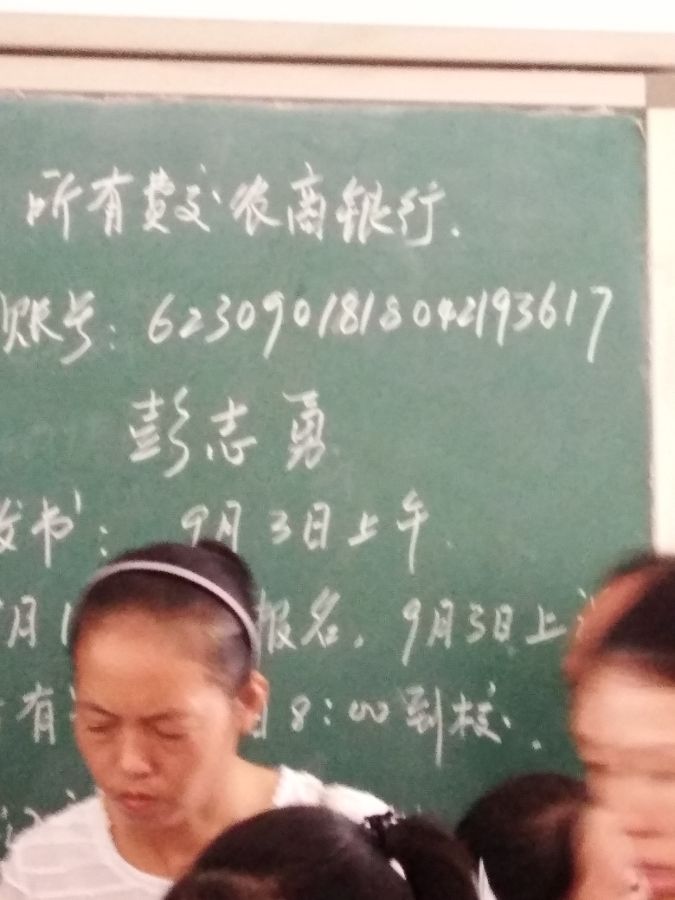 所有费交农商银行.
账号: 6230901818042193617
彭志勇
发书: 9月3日上午
月1 报名. 9月3日上
有 8:00到校.